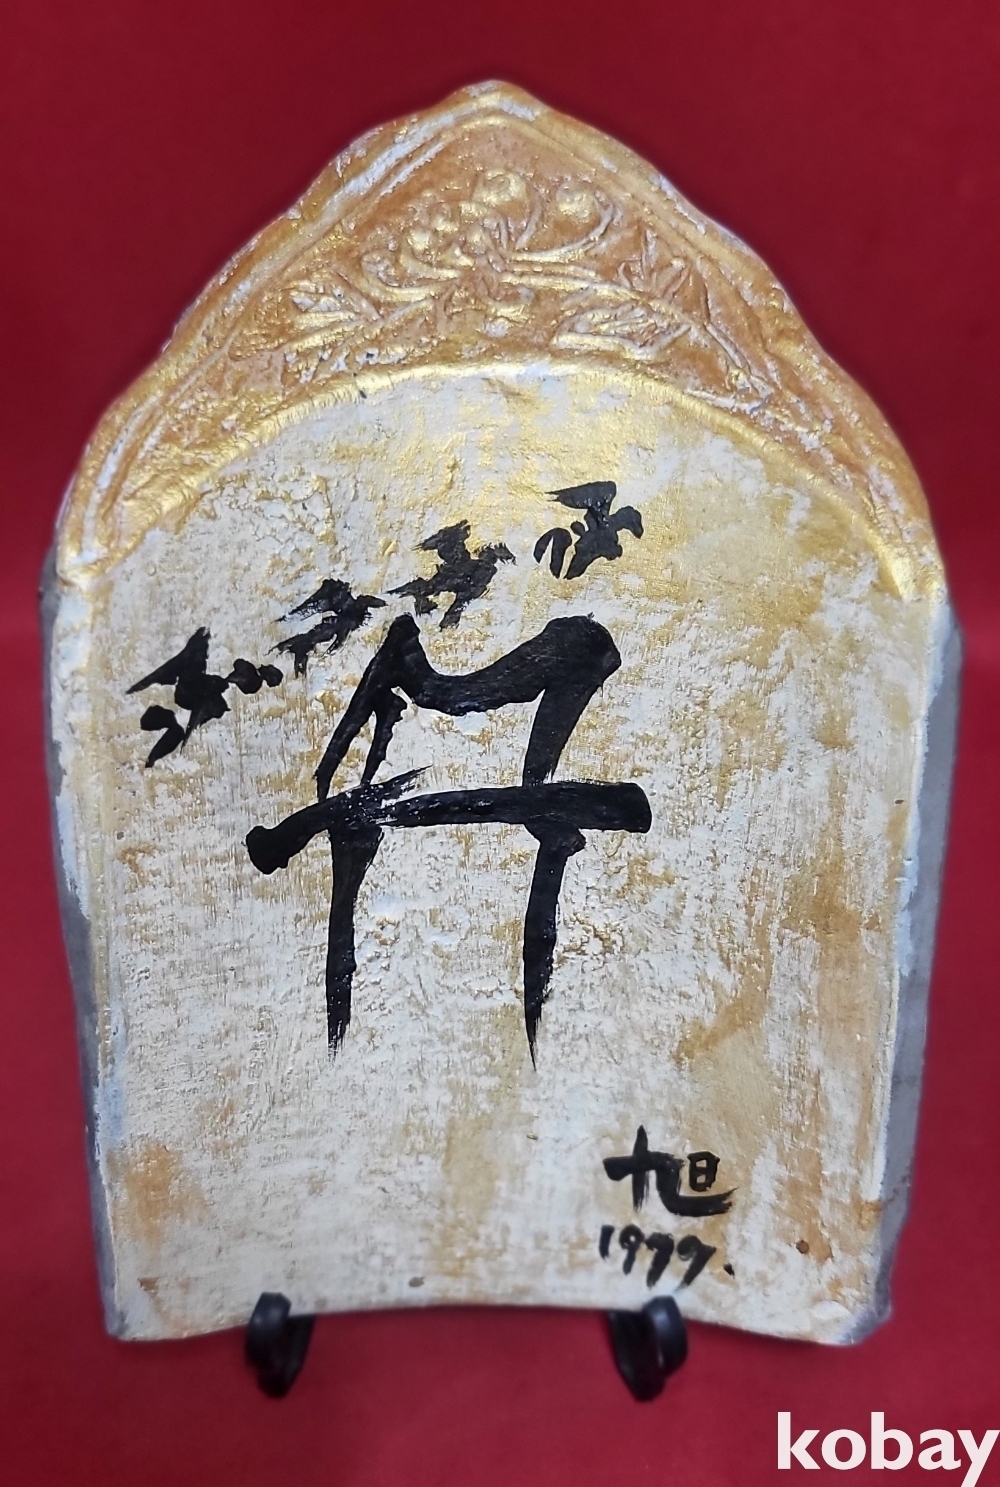 旭
1979.
kobay